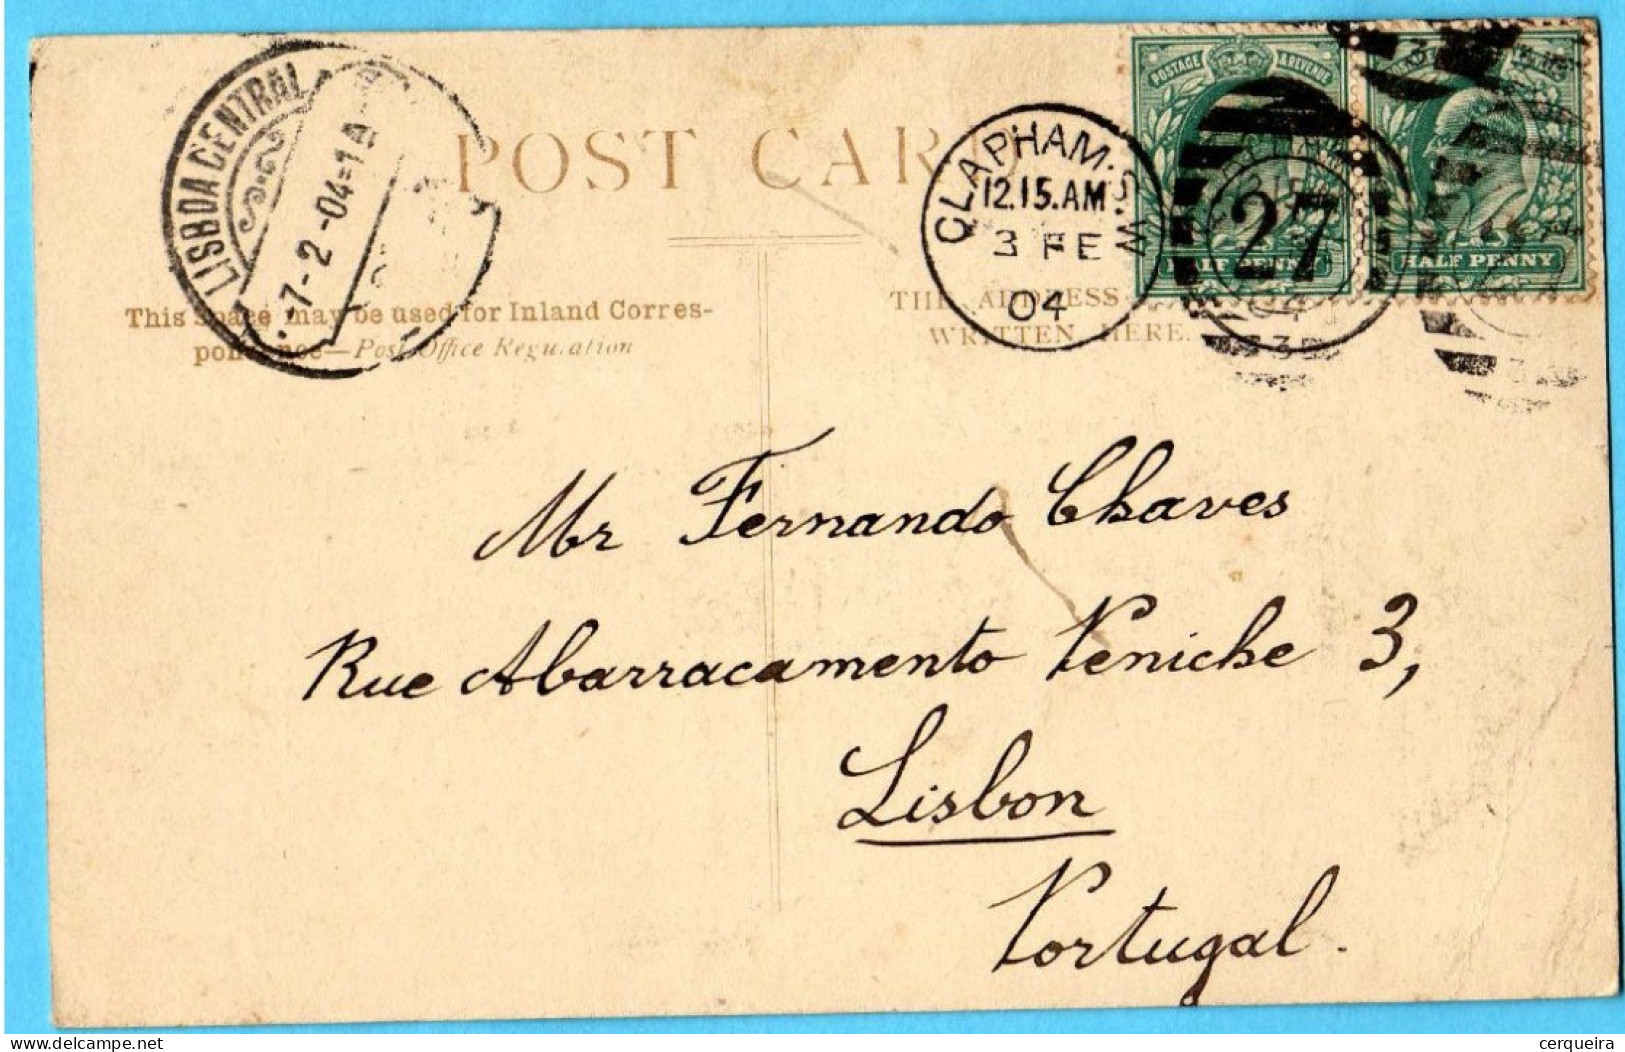 LISBOA CENTRAL
-7-2-04=1
POST CAR
CLAPHAM.S.W
12.15.AM
3 FE
04
27
POSTAGE & REVENUE
HALF PENNY
HALF PENNY
This space may be used for Inland Corres-
pondence—Post Office Regulation
THE ADDRESS
WRITTEN HERE.
Mr Fernando Chaves
Rue Abarracamento Peniche 3,
Lisbon
Portugal.
delcampe.net
cerqueira